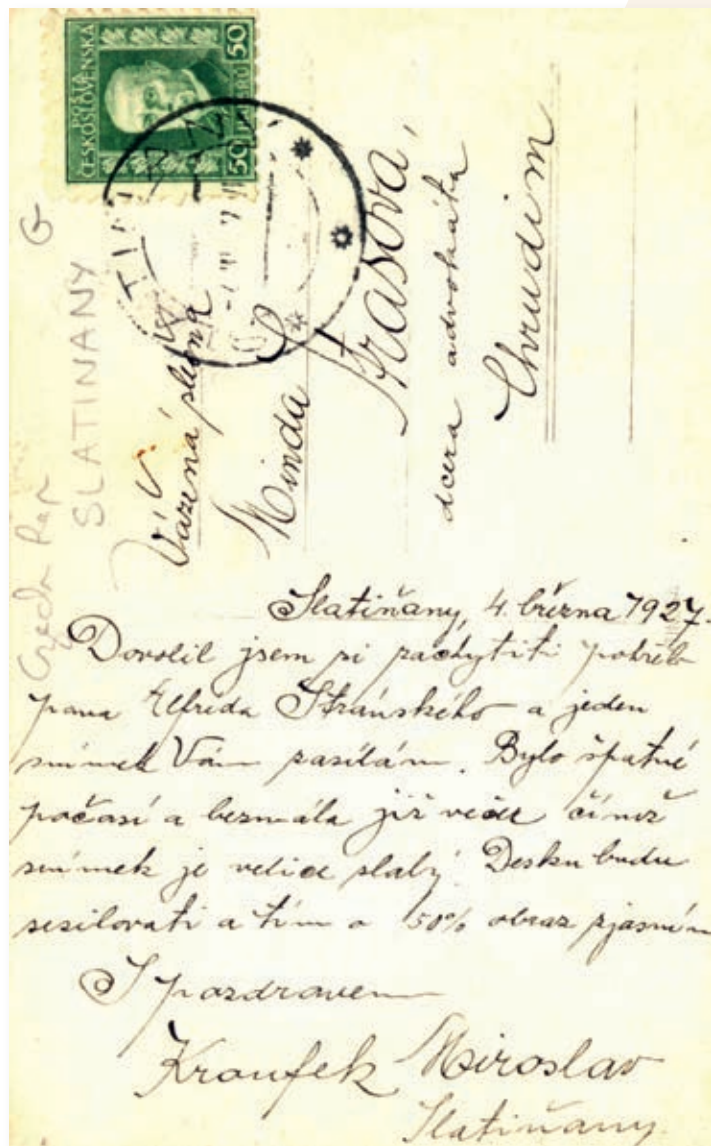 POŠTA
ČESKOSLOVENSKÁ
50 50
G
SLATINANY
Czech Rep
Vážená slečna
Minda
Strasova,
dcera advokáta
Chrudim
Slatiňany, 4. března 1927.
Dovolil jsem si zachytiti pohřeb
pana Alfreda Stránského a jeden
snímek Vám zasílám. Bylo špatné
počasí a bezmála již večer čímž
snímek je velice slabý. Desku budu
sesilovati a tím o 50% obraz zjasním
S pozdravem
Kroufek Miroslav
Slatiňany.